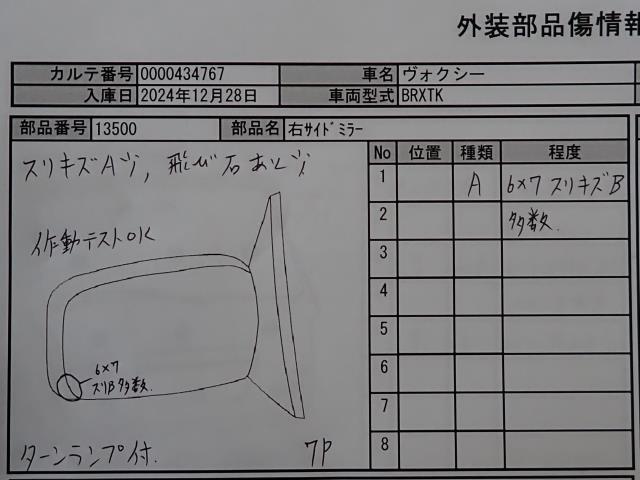 外装部品傷情報
カルテ番号 0000434767 車名 ヴォクシー
入庫日 2024年12月28日 車両型式 BRXTK
部品番号 13500 部品名 右サイドミラー
スリキズAツ, 飛び石あとツ
作動テストOK
6×7
スリB多数.
ターンランプ付. 7P
No 位置 種類 程度
1 A 6×7 スリキズB
2 多数.
3
4
5
6
7
8